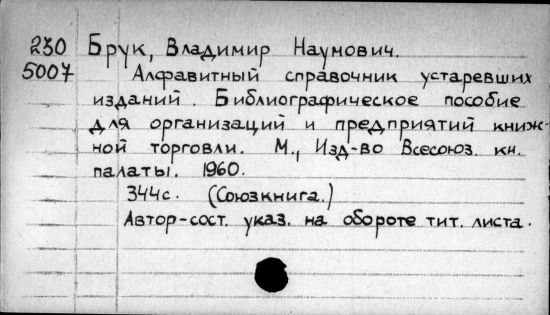 230 Брук, Владимир Наумович.
5007 Алфавитный справочник устаревших
изданий. Библиографическое пособие
для организаций и предприятий книж-
ной торговли. М., Изд-во Всесоюз. кн.
палаты. 1960.
344с. (Союзкнига.)
Автор-сост. указ. на обороте тит. листа.